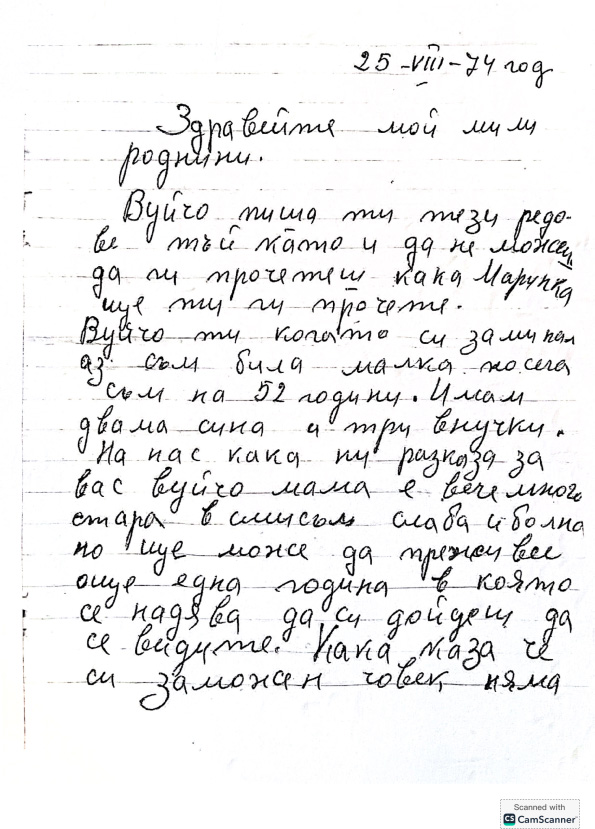 25-VIII-74 год
Здравейте мой мили
роднини.
Вуйчо пиша ти тези редо-
ве тъй като и да не можеш
да ги прочетеш кака Марупка
ще ти ги прочете.
Вуйчо ти когато си заминал
аз съм била малка но сега
съм на 52 години. Имам
двама сина и три внучки.
На нас кака ни разказа за
вас вуйчо мама е вече много
стара в смисъл слаба и болна
но ще може да преживее
още една година в която
се надява да си дойдеш да
се видите. Кака каза че
си заможен човек няма
Scanned with
CS CamScanner